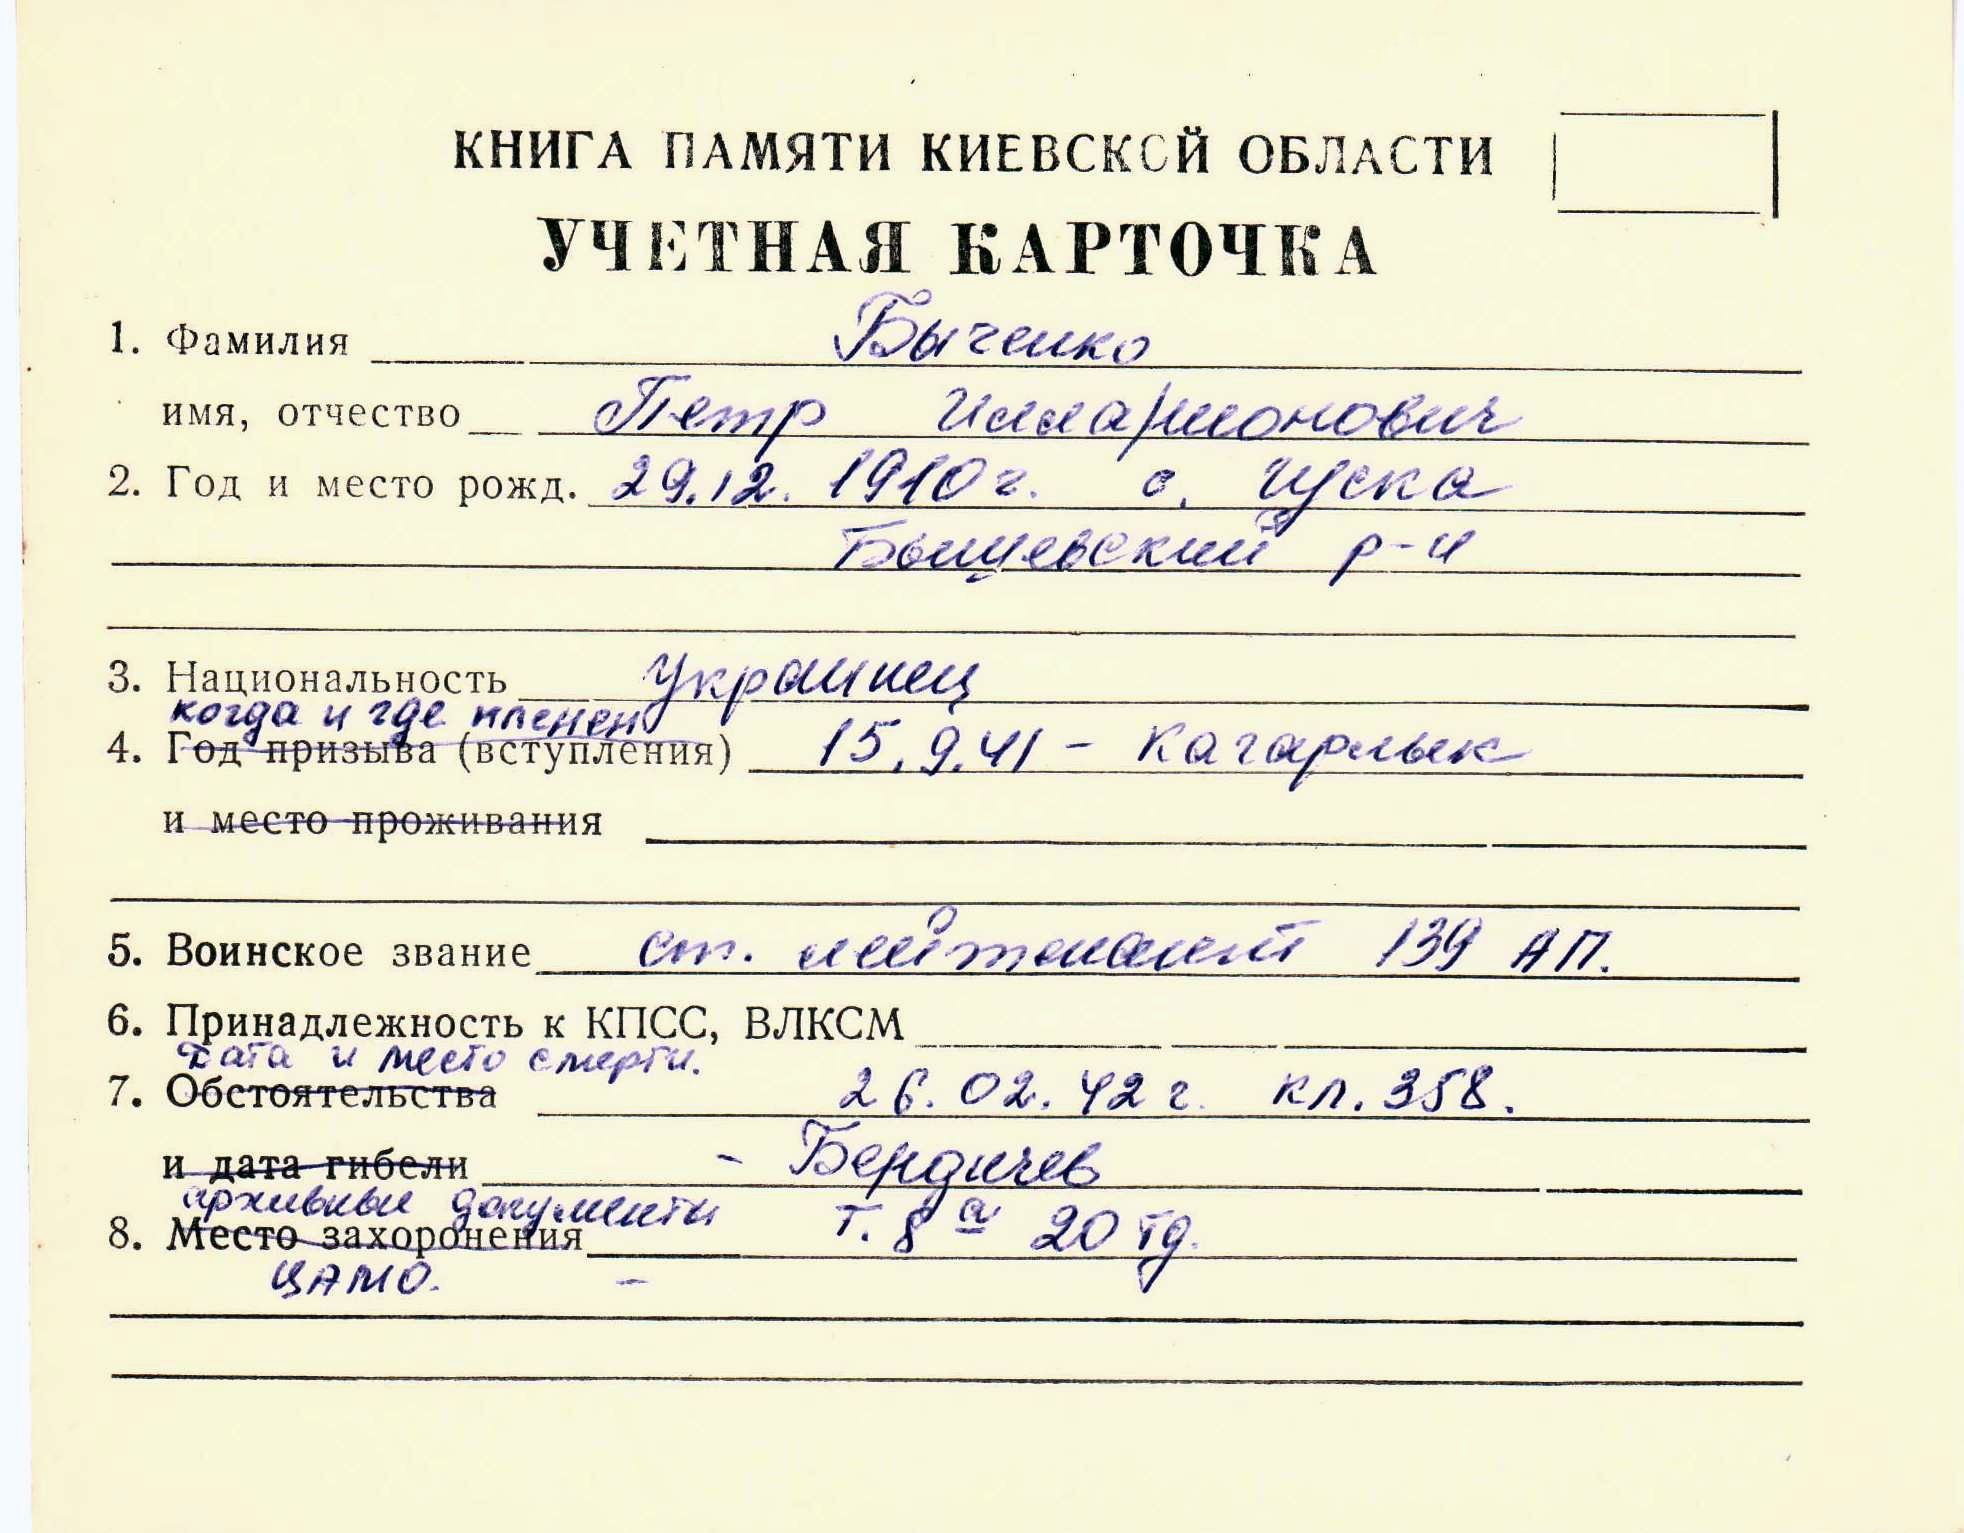 КНИГА ПАМЯТИ КИЕВСКОЙ ОБЛАСТИ
УЧЕТНАЯ КАРТОЧКА
1. Фамилия Быченко
имя, отчество Петр Илларионович
2. Год и место рожд. 29.12.1910 г. с.
Бышевский р-н
3. Национальность украинец
когда и где пленен
4. Год призыва (вступления) 15.9.41 - Кагарлык
и место проживания
5. Воинское звание ст. лейтенант 139 АП.
6. Принадлежность к КПСС, ВЛКСМ
Дата и место смерти.
7. Обстоятельства 26.02.42 г. кл. 358.
и дата гибели - Бердичев
архивные документы
8. Место захоронения т. 8 а 20 тд.
ЦАМО. -